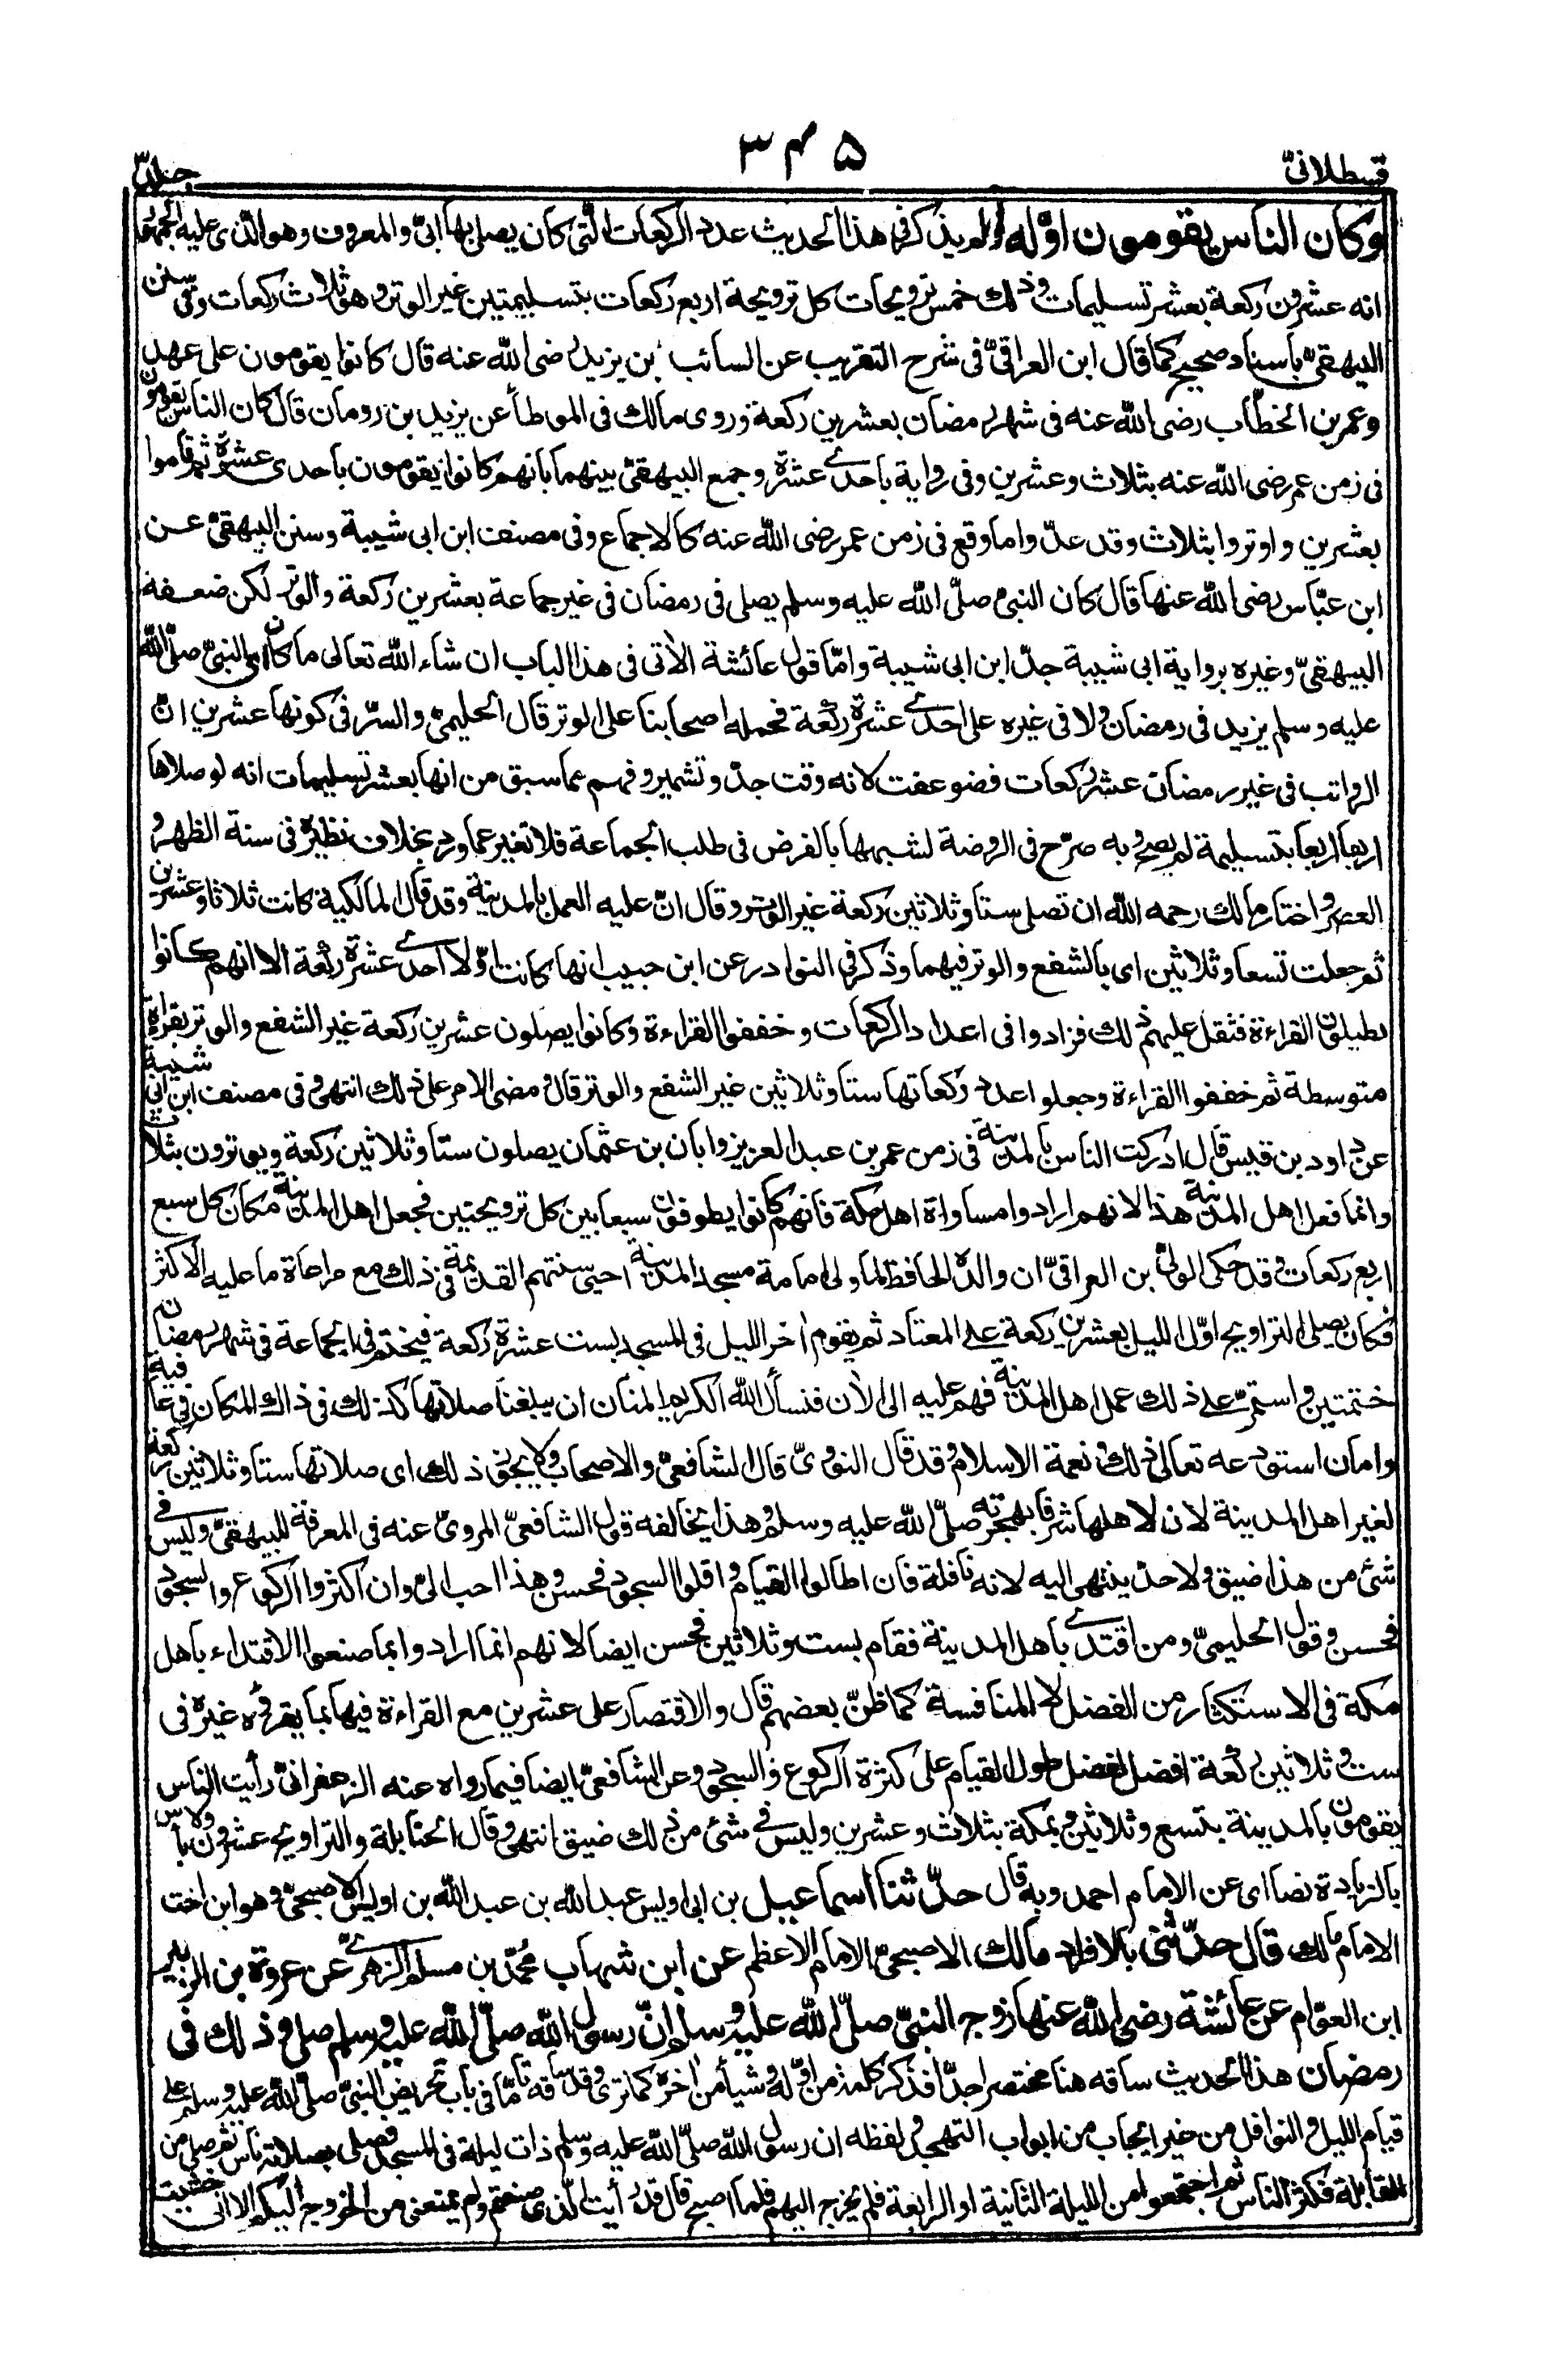 قسطلانىّ
٣٤٥
جلد ٣
وكان الناس يقومون اوّله ولم يذكر فى هذا الحديث عدد الركعات الّتى كان يصلى بها ابىّ والمعروف وهو الّذى عليه الجمهور
انه عشرون ركعة بعشر تسليمات وذلك خمس ترويحات كل ترويحة اربع ركعات بتسليمتين غير الوتر وهو ثلاث ركعات وفى سنن
البيهقىّ باسناد صحيح كما قال ابن العراقىّ فى شرح التقريب عن السائب بن يزيد رضى الله عنه قال كانوا يقومون على عهد
وعمر بن الخطّاب رضى الله عنه فى شهر رمضان بعشرين ركعة وروى مالك فى الموطأ عن يزيد بن رومان قال كان الناس يقومون
فى زمن عمر رضى الله عنه بثلاث وعشرين وفى رواية باحدى عشرة وجمع البيهقىّ بينهما بانهم كانوا يقومون باحدى عشرة ثم قاموا
بعشرين واوتروا بثلاث وقد عدّ واما وقع فى زمن عمر رضى الله عنه كالاجماع وفى مصنف ابن ابى شيبة وسنن البيهقىّ عن
ابن عبّاس رضى الله عنهما قال كان النبى صلّى الله عليه وسلم يصلى فى رمضان فى غير جماعة بعشرين ركعة والوتر لكن ضعفه
البيهقىّ وغيره برواية ابى شيبة جدّ ابن ابى شيبة وامّا قول عائشة الآتى فى هذا الباب ان شاء الله تعالى ما كان اى النبىّ صلّى الله
عليه وسلم يزيد فى رمضان ولا فى غيره على احدى عشرة ركعة فحمله اصحابنا على الوتر قال الحليمىّ والسرّ فى كونها عشرين انّ
الرواتب فى غير رمضان عشر ركعات فضوعفت لانه وقت جدّ وتشمير وفهم مما سبق من انها بعشر تسليمات انه لو صلاها
اربعا اربعا بتسليمة لم يصح وبه صرّح فى الروضة لشبهها بالفرض فى طلب الجماعة فلا تغير عما ورد بخلاف نظيره فى سنة الظهر و
العصر واختار مالك رحمه الله ان تصلى ستا وثلاثين ركعة غير الوتر وقال انّ عليه العمل بالمدينة وقد قال المالكية كانت ثلاثا وعشرين
ثم جعلت تسعا وثلاثين اى بالشفع والوتر فيهما وذكر فى النوادر عن ابن حبيب انها كانت اوّلا احدى عشرة ركعة الا انهم كانوا
يطيلون القراءة فثقل عليهم ذلك فزادوا فى اعداد الركعات وخففوا القراءة وكانوا يصلون عشرين ركعة غير الشفع والوتر بقراءة
متوسطة ثم خففوا القراءة وجعلوا عدد ركعاتها ستا وثلاثين غير الشفع والوتر قال ومضى الامر على ذلك انتهى وفى مصنف ابن ابى شيبة
عن داود بن قيس قال ادركت الناس بالمدينة فى زمن عمر بن عبد العزيز وابان بن عثمان يصلون ستا وثلاثين ركعة ويوترون بثلاث
وانما فعل اهل المدينة هذا لانهم ارادوا مساواة اهل مكة فانهم كانوا يطوفون سبعا بين كل ترويحتين فجعل اهل المدينة مكان كل سبع
اربع ركعات وقد حكى الولىّ بن العراقىّ ان والده الحافظ لما ولى امامة مسجد المدينة احيى سنتهم القديمة فى ذلك مع مراعاة ما عليه الاكثر
فكان يصلى التراويح اوّل الليل بعشرين ركعة على المعتاد ثم يقوم آخر الليل فى المسجد بست عشرة ركعة فيختم فى الجماعة فى شهر رمضان
ختمتين واستمرّ على ذلك عمل اهل المدينة فهم عليه الى الآن فنسأل الله الكريم المنان ان يبلغنا صلاتها كذلك فى ذاك المكان فى عافية
وامان استودعه تعالى ذلك ونعمة الاسلام وقد قال النووىّ قال الشافعىّ والاصحاب ولا يجوز ذلك اى صلاتها ستا وثلاثين ركعة
لغير اهل المدينة لان لاهلها شرفا بهجرته صلّى الله عليه وسلم وهذا يخالفه قول الشافعىّ المروىّ عنه فى المعرفة للبيهقىّ وليس فى
شئ من هذا ضيق ولا حدّ ينتهى اليه لانه نافلة فان اطالوا القيام واقلوا السجود فحسن وهذا احب الىّ وان اكثروا الركوع والسجود
فحسن وقول الحليمىّ ومن اقتدى باهل المدينة فقام بست وثلاثين فحسن ايضا لانهم انما ارادوا بما صنعوا الاقتداء باهل
مكة فى الاستكثار من الفضل لا المنافسة كما ظنّ بعضهم قال والاقتصار على عشرين مع القراءة فيها بما يقرؤه غيره فى
ست وثلاثين ركعة افضل لفضل طول القيام على كثرة الركوع والسجود وعن الشافعىّ ايضا فيما رواه عنه الزعفرانىّ رأيت الناس
يقومون بالمدينة بتسع وثلاثين وبمكة بثلاث وعشرين وليس فى شئ من ذلك ضيق انتهى وقال الحنابلة والتراويح عشرون ولا بأس
بالزيادة نصا اى عن الامام احمد وبه قال حدّثنا اسماعيل بن ابى اويس عبد الله بن عبد الله بن اويس الاصبحىّ وهو ابن اخت
الامام مالك قال حدّثنى بالافراد مالك الاصبحىّ الامام الاعظم عن ابن شهاب محمّد بن مسلم الزهرىّ عن عروة بن الزبير
ابن العوّام عن عائشة رضى الله عنها زوج النبىّ صلّى الله عليه وسلم انّ رسول الله صلّى الله عليه وسلم صلى وذلك فى
رمضان هذا الحديث ساقه هنا مختصرا جدّا فذكر كلمة من اوّله وشيأ من آخره كما ترى وقد ساقه تامّا فى باب تحريض النبىّ صلّى الله عليه وسلم على
قيام الليل والنوافل من غير ايجاب من ابواب التهجد ولفظه ان رسول الله صلّى الله عليه وسلم ذات ليلة فى المسجد فصلى بصلاته ناس ثم صلى من
القابلة فكثر الناس ثم اجتمعوا من الليلة الثانية او الرابعة فلم يخرج اليهم فلما اصبح قال قد رأيت الّذى صنعتم ولم يمنعنى من الخروج اليكم الا انى خشيت